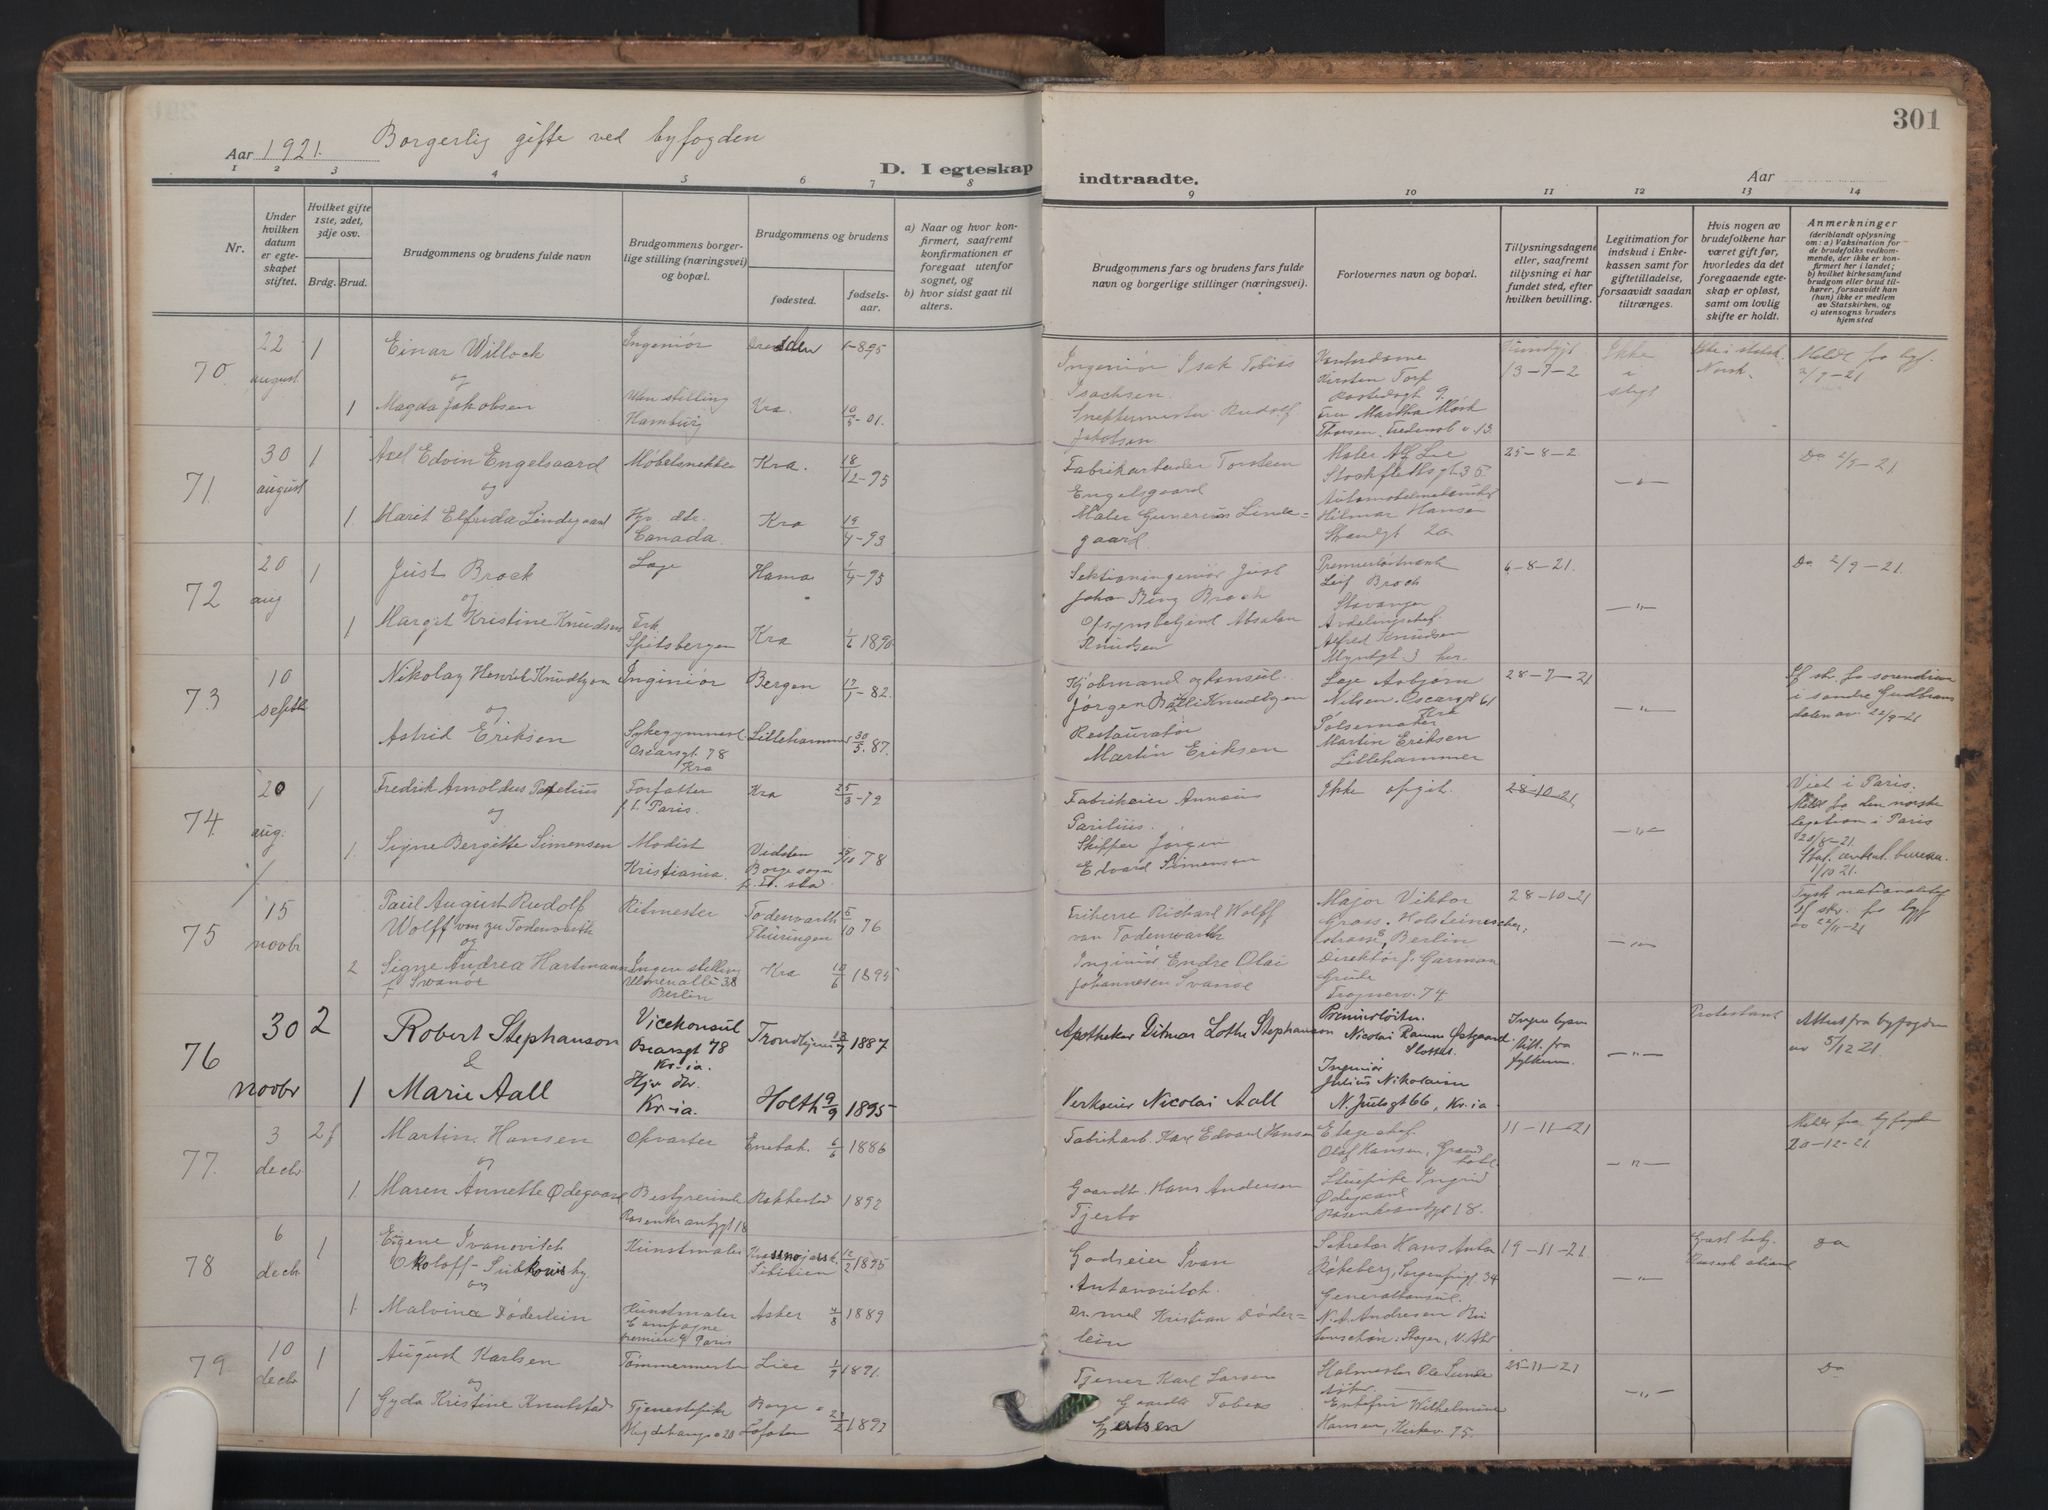 301
Aar 1921. Borgerlig gifte ved byfogden
D. I egteskap indtraadte.
Aar
1 2 3 4 5 6 7 8 9 10 11 12 13 14
Nr.
Under hvilken datum er egteskapet stiftet.
Hvilket gifte 1ste, 2det, 3dje osv.
Brdg. Brud.
Brudgommens og brudens fulde navn
Brudgommens borgerlige stilling (næringsvei) og bopæl.
Brudgommens og brudens
fødested.
fødselsaar.
a) Naar og hvor konfirmert, saafremt konfirmationen er foregaat utenfor sognet, og
b) hvor sidst gaat til alters.
Brudgommens fars og brudens fars fulde navn og borgerlige stillinger (næringsvei).
Forlovernes navn og bopæl.
Tillysningsdagene eller, saafremt tillysning ei har fundet sted, efter hvilken bevilling.
Legitimation for indskud i Enkekassen samt for giftetilladelse, forsaavidt saadan tiltrænges.
Hvis nogen av brudefolkene har været gift før, hvorledes da det foregaaende egteskap er opløst, samt om lovlig skifte er holdt.
Anmerkninger (deriblandt oplysning om: a) Vaksination for de brudefolks vedkommende, der ikke er konfirmert her i landet; b) hvilket kirkesamfund brudgom eller brud tilhører, forsaavidt han (hun) ikke er medlem av Statskirken, og c) utensogns bruders hjemsted
70. 22 august 1 Einar Willoch Ingeniør 1-895
og
1 Magda Jakobsen Uten stilling Hamburg Kra. 10/5-01.
Ingeniør Isak Tobias Isachsen.
Snekkermester Rudolf Jakobsen
Kontordame Kirsten Torp
Fru Martha Mørk Thorsen
13-7-2
Ikke i
Melde fra byf. 2/9-21
71. 30 august 1 Axel Edvin Engelsaard Møbelsnekker Kra. 18/12-95
og
1. Marit Elfrida Lindegaard Hjv. dtr. Canada. Kra 19/4-93
Fabrikarbeider Torstein Engelsgaard
Maler Gunerius Lindegaard.
Maler Alf Lie Stockflethsgt. 35
Hilmar Hansen Strandgt 20
25-8-2.
-"-
Do 2/9-21
72 20 aug 1 Just Broch Læge Hamar 1/4-95
og
1 Margit Kristine Knudsen Frk Spitsbergen Kra 1/6 1890
Sektioningeniør Just Johan Bing Broch
Opsynsbetjent Absalon Knudsen
Premierløitnant Leif Broch Stavanger
Avdelingschef Alfred Knudsen Myntgt 3 her.
6-8-21.
-"-
Do 2/9-21.
73 10 septbr Nikolay Henrik Knudtzon Ingeniør Bergen 17/1-82.
og
Astrid Eriksen Sykegymnast Oscarsgt. 78 Kra Lillehammer 30/5.87.
Kjøbmand og konsul. Jørgen Knudtzon
Restauratør Martin Eriksen
Læge Asbjørn Nilsen. Oscarsgt 61 Kra
Pølsemaker Martin Eriksen Lillehammer
28-7-21
-"-
If. skr. fra sorenskriveren i søndre Gudbrandsdalen av 22/9-21
74. 20 aug. 1 Fredrik Arnoldus Parelius Forfatter f. t. Paris. Kra 25/3-72
og
1. Signe Bergitte Simensen Modist Kristiania. Borge sogn 78
Fabrikeier
Skipper Jørgen Edvard Simensen
Ikke opgit.
28-10-21
-"-
Viet i Paris.
Melde fra den norske legation i Paris 20/8-21.
1/10 21.
75 15 novbr Paul August Rudolf Wolff von zu Todenwarth Ritmester Todenwarth Thüringen 5/10 76
og
2 Signe Andrea Hartmann f. Svanøe Ingen stilling Ulmenallé 38 Berlin Kra 10/6 1895
Friherre Richard Wolff von Todenwarth
Ingeniør Endre Olai Johannesen Svanøe
Major Viktor Grass. Holsteinischerstrasse 8, Berlin
Direktør J. Garman Grube Frognerv. 74.
28-10-21
-"-
Tysk nationalitet If skr. fra byf av 22/11-21
76 30 novbr 2 Robert Stephanson Vicekonsul Oscarsgt 78 Kr.ia. Trondhjem 1887
&
1 Marie Aall Hjv dtr. Kr-ia. Holth 9/9 1895
Apotheker Ditmar Lothe Stephanson
Verkseier Nicolai Aall
Premierløitn. Nicolai Ramm Østgaard. Slottet.
Ingeniør Julius Nikolaisen N. Juelsgt 66, Kr.ia
Ingen lysn. till. fra fylkesm.
-"-
Protestant
Attest fra byfogden av 5/12 21.
77. 3 decbr 2 Martin Hansen Opvarter Enebak. 6/6 1886
og
1. Maren Annette Ødegaard Bestyrerinde Rosenkrantzgt 18 Rakkestad 1892
Fabrikarb. Karl Edvard Hansen
Gaardbr. Hans Andersen Tjerbo
Etagechef Olaf Hansen, Grand hotel
Stuepike Ingrid Ødegaard Rosenkrantzgt 18.
11-11-21
-"-
Melde fra byfogden 20-12-21.
78 6 decbr 1 Eugene Ivanovitch Okoloff-Subkowsky Kunstmaler Krassnojarsk. Sibirien 12/2 1895
og
1. Malvina Døderlein Kunstmaler Campagne première 9 Paris Asker 4/8 1889
Godseier Ivan Antonovitch.
Dr. med Kristian Døderlein
Sekretær Hans Anton Sorgenfrigt. 34
Generalkonsul. N. A. Andresen
19-11-21.
-"-
Russisk
Do
79. 10 decbr 1 August Karlsen Tømmermester Lier 1/9 1891.
og
1 Gyda Kristine Knulstad Tjenestepike Borge Lofoten 1893
Tjener Karl Larsen
Gaardbr Tobias Gjertsen
Ole Sunde
Wilhelmine Hansen, Kirkev. 75.
25-11-21
-"-
Do